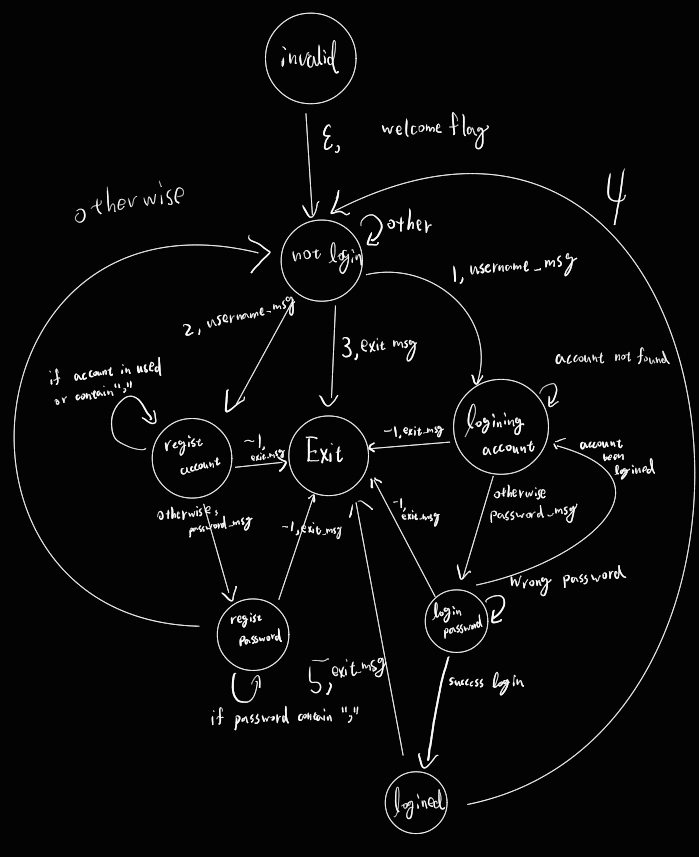 invalid
ε,
welcome flag
otherwise
4
not login
other
1, username_msg
2, username_msg
3, exit msg
if account in used
or contain ";"
account not found
regist
account
-1,
exit_msg
Exit
-1, exit_msg
logining
account
account
been
logined
otherwise,
password_msg
otherwise
password_msg
-1, exit_msg
-1,
exit_msg
wrong password
regist
password
login
password
5, exit_msg
success login
if password contain ";"
logined